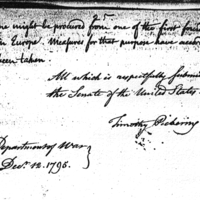 might be procured from one of the first
in Europe. Measures for that purpose have
been taken.
All which is respectfully
the Senate of the United States.
Timothy Pickering
Department of War
Decr. 12. 1795.